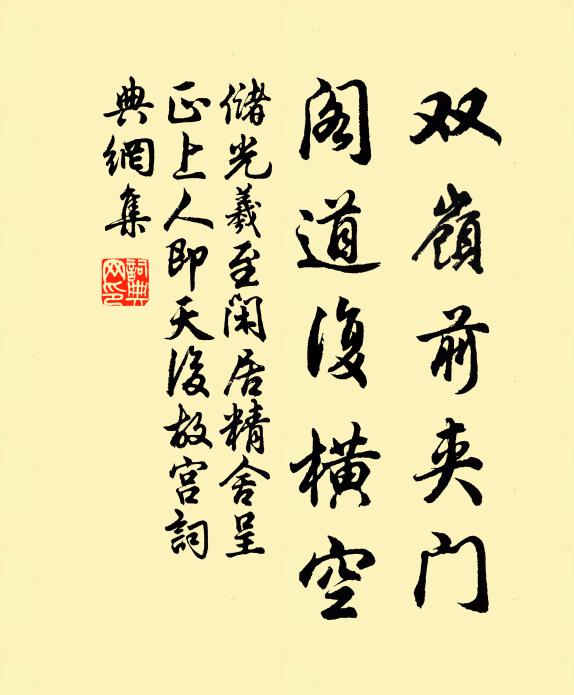 双嶺前夹门
阁道復横空
储光羲至闲居精舍呈
正上人即天後故宫詞
典網集
詞典
网印